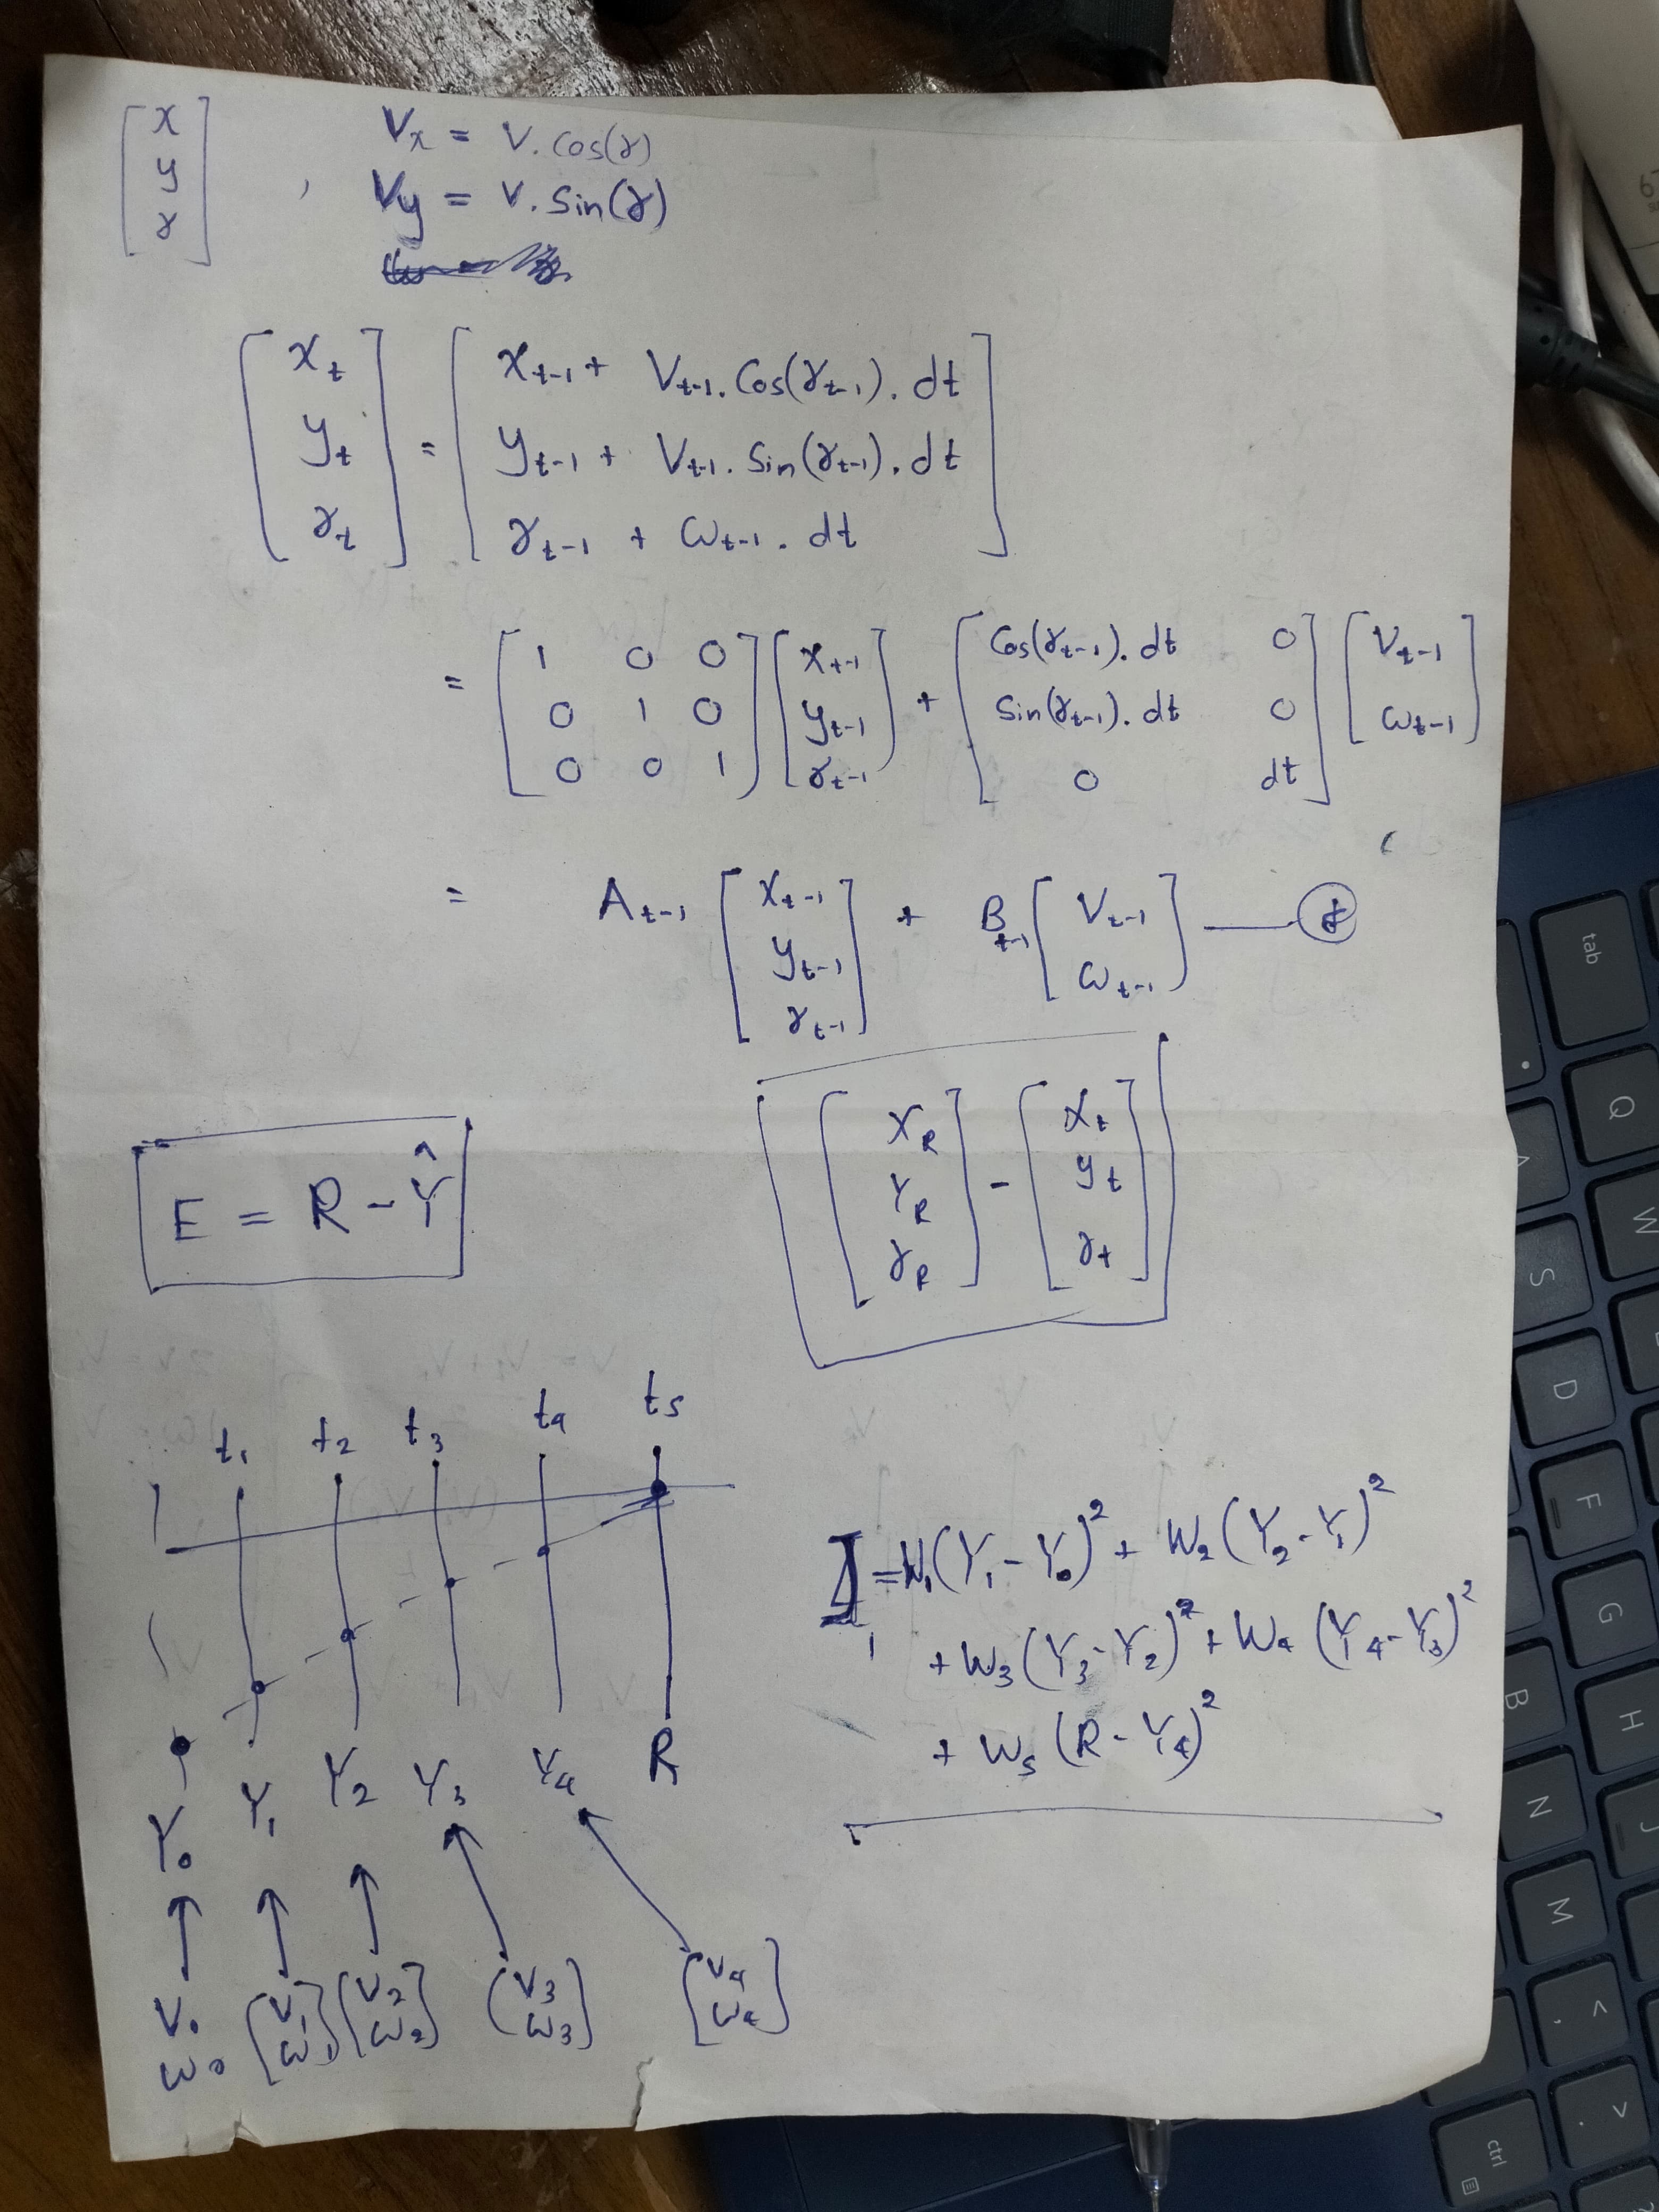 [x y γ] , Vx = V. Cos(γ)
Vy = V. Sin(γ)
[xt yt γt] = [xt-1 + Vt-1. Cos(γt-1). dt
yt-1 + Vt-1. Sin(γt-1). dt
γt-1 + ωt-1. dt]
= [1 0 0 [xt-1 + [Cos(γt-1). dt 0 [Vt-1
0 1 0 yt-1 Sin(γt-1). dt 0 ωt-1]
0 0 1] γt-1] 0 dt]
= At-1 [xt-1 yt-1 γt-1] + Bt-1 [Vt-1 ωt-1]
E = R - Ŷ
[XR YR γR] - [xt yt γt]
t1 t2 t3 t4 t5
Y0 Y1 Y2 Y3 Y4 R
V0 ω0 [V1 ω1] [V2 ω2] [V3 ω3] [V4 ω4]
J1 = W1(Y1 - Y0)² + W2(Y2 - Y1)²
+ W3(Y3 - Y2)² + W4(Y4 - Y3)²
+ W5(R - Y4)²
tab
Q
W
A
S
D
F
G
H
B
N
J
M
<
,
>
.
ctrl